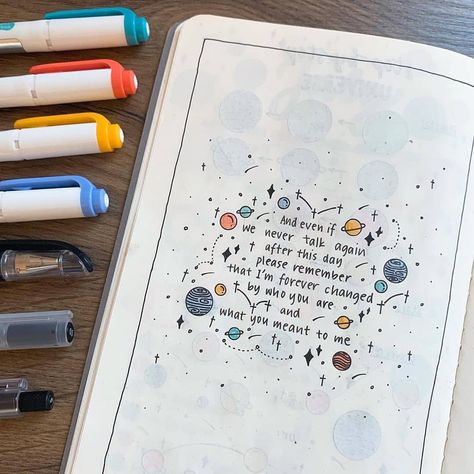 And even if
we never talk again
after this day
please remember
that I'm forever changed
by who you are
and
what you meant to me